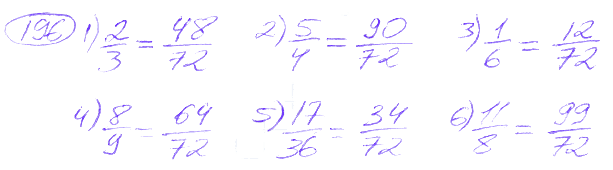 196 1) 2/3 = 48/72 2) 5/4 = 90/72 3) 1/6 = 12/72
4) 8/9 = 64/72 5) 17/36 = 34/72 6) 11/8 = 99/72